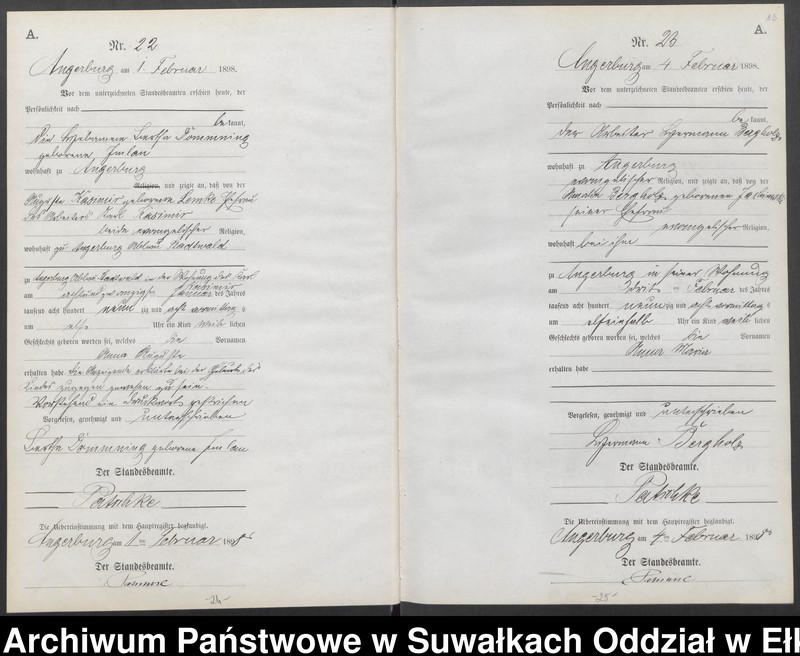 A.
Nr. 22
Angerburg am 1. Februar 1898.
Vor dem unterzeichneten Standesbeamten erschien heute, der
Persönlichkeit nach
be kannt,
die Hebamme Bertha Dömmning
geborene Imlau
wohnhaft zu Angerburg
Religion, und zeigte an, daß von der
Auguste Kasimir geborene Lemke Ehefrau
des Arbeiters Karl Kasimir
beide evangelischer Religion,
wohnhaft zu Angerburg Abbau Stadtwald
zu Angerburg Abbau Stadtwald in der Wohnung des Karl
Kasimir
am achtundzwanzigsten Januar des Jahres
tausend acht hundert neun zig und acht vormittags
um elf Uhr ein Kind weib lichen
Geschlechts geboren worden sei, welches die Vornamen
Anna Auguste
erhalten habe. Die Anzeigende erklärte bei der Geburt des
Kindes zugegen gewesen zu sein.
Vorstehend ein Druckwort gestrichen
Vorgelesen, genehmigt und unterschrieben
Bertha Dömmning geborene Imlau
Der Standesbeamte.
Die Uebereinstimmung mit dem Hauptregister beglaubigt.
Angerburg am 1ten Februar 1898
Der Standesbeamte.
-24-
A.
Nr. 23
Angerburg am 4 Februar 1898.
Vor dem unterzeichneten Standesbeamten erschien heute, der
Persönlichkeit nach
be kannt,
der Arbeiter Hermann Bergholz
wohnhaft zu Angerburg
evangelischer Religion, und zeigte an, daß von der
Bergholz geborenen
seiner Ehefrau
evangelischer Religion,
wohnhaft bei ihm
zu Angerburg in seiner Wohnung
am dritten Februar des Jahres
tausend acht hundert neunzig und acht vormittags
um elfeinhalb Uhr ein Kind weib lichen
Geschlechts geboren worden sei, welches die Vornamen
Anna Maria
erhalten habe
Vorgelesen, genehmigt und unterschrieben
Hermann Bergholz
Der Standesbeamte.
Die Uebereinstimmung mit dem Hauptregister beglaubigt.
Angerburg am 4ten Februar 1898
Der Standesbeamte.
-25-
Archiwum Państwowe w Suwałkach Oddział w Eł